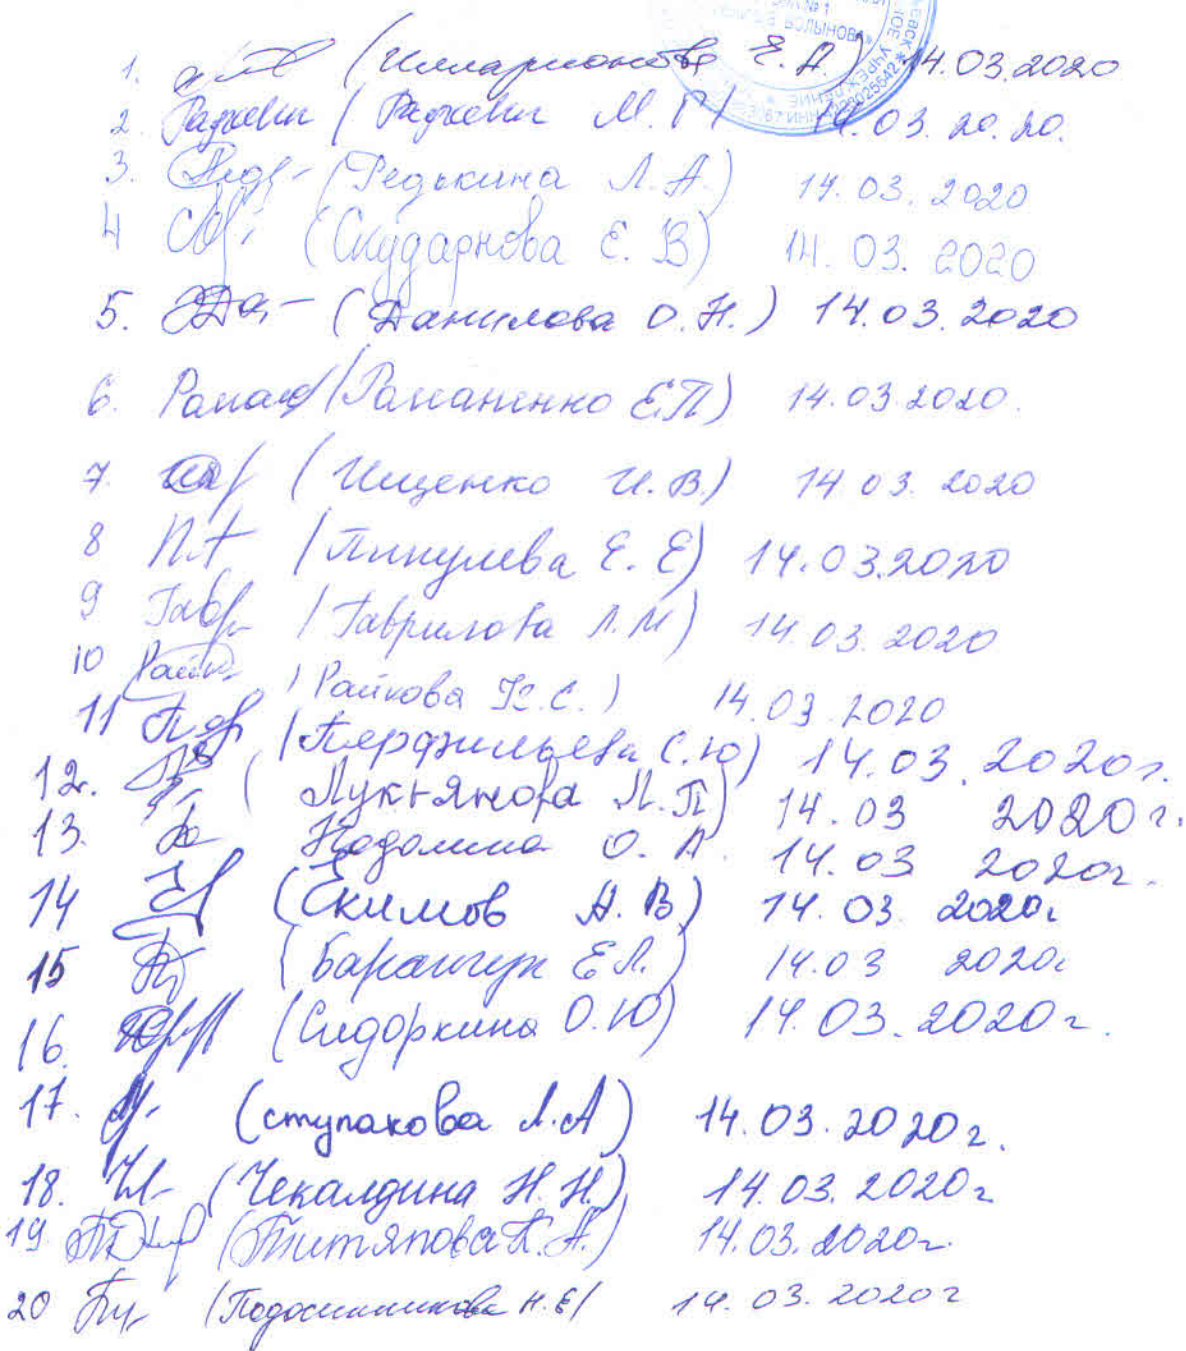 № 1
ВОЛЫНОВА"
1. (Илларионова Е.А.) 14.03.2020
2. Радкевич (Радкевич М.П) 14.03.20.20.
3. (Редькина Л.А.) 14.03.2020
4 (Скударнова Е.В) 14.03.2020
5. (Данилова О.Н.) 14.03.2020
6. (Романенко Е.П) 14.03.2020.
7. (Ищенко И.В.) 14 03. 2020
8 (Пикулева Е.Е) 14.03.2020
9 Гавр (Гаврилова Л.М) 14.03.2020
10 (Райкова К.С.) 14.03.2020
11 (Перфильева С.Ю) 14.03.2020г.
12. (Лукьянова Л.П) 14.03 2020г.
13. О.А. 14.03 2020г.
14 (Екимов А.В) 14.03. 2020г
15 (Баранчук Е.Л.) 14.03 2020г
16. (Сидоркина О.Ю) 14.03.2020г.
17. (ступакова Л.А) 14.03.2020г.
18. (Чекалдина Н.Н.) 14.03.2020г
19 (Титяпова К.А.) 14.03.2020г.
20 (Подосинникова Н.Е) 14.03.2020г